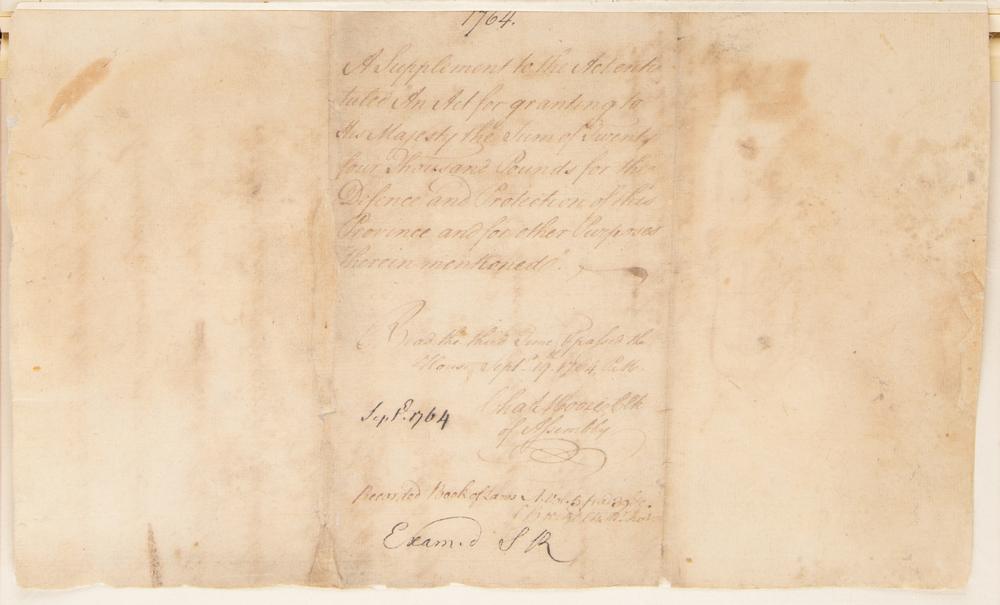 1764.
A Supplement to the Act enti-
tuled "An Act for granting to
His Majesty the Sum of Twenty
four Thousand Pounds for the
Defence and Protection of this
Province and for other Purposes
therein mentioned".
Read the third Time & passed the
House Sept.r 19.th 1764. P.M.
Cha.s Moore, Clk
of Assembly
Sept.r 1764
Recorded Book of Laws
Exam.d S R